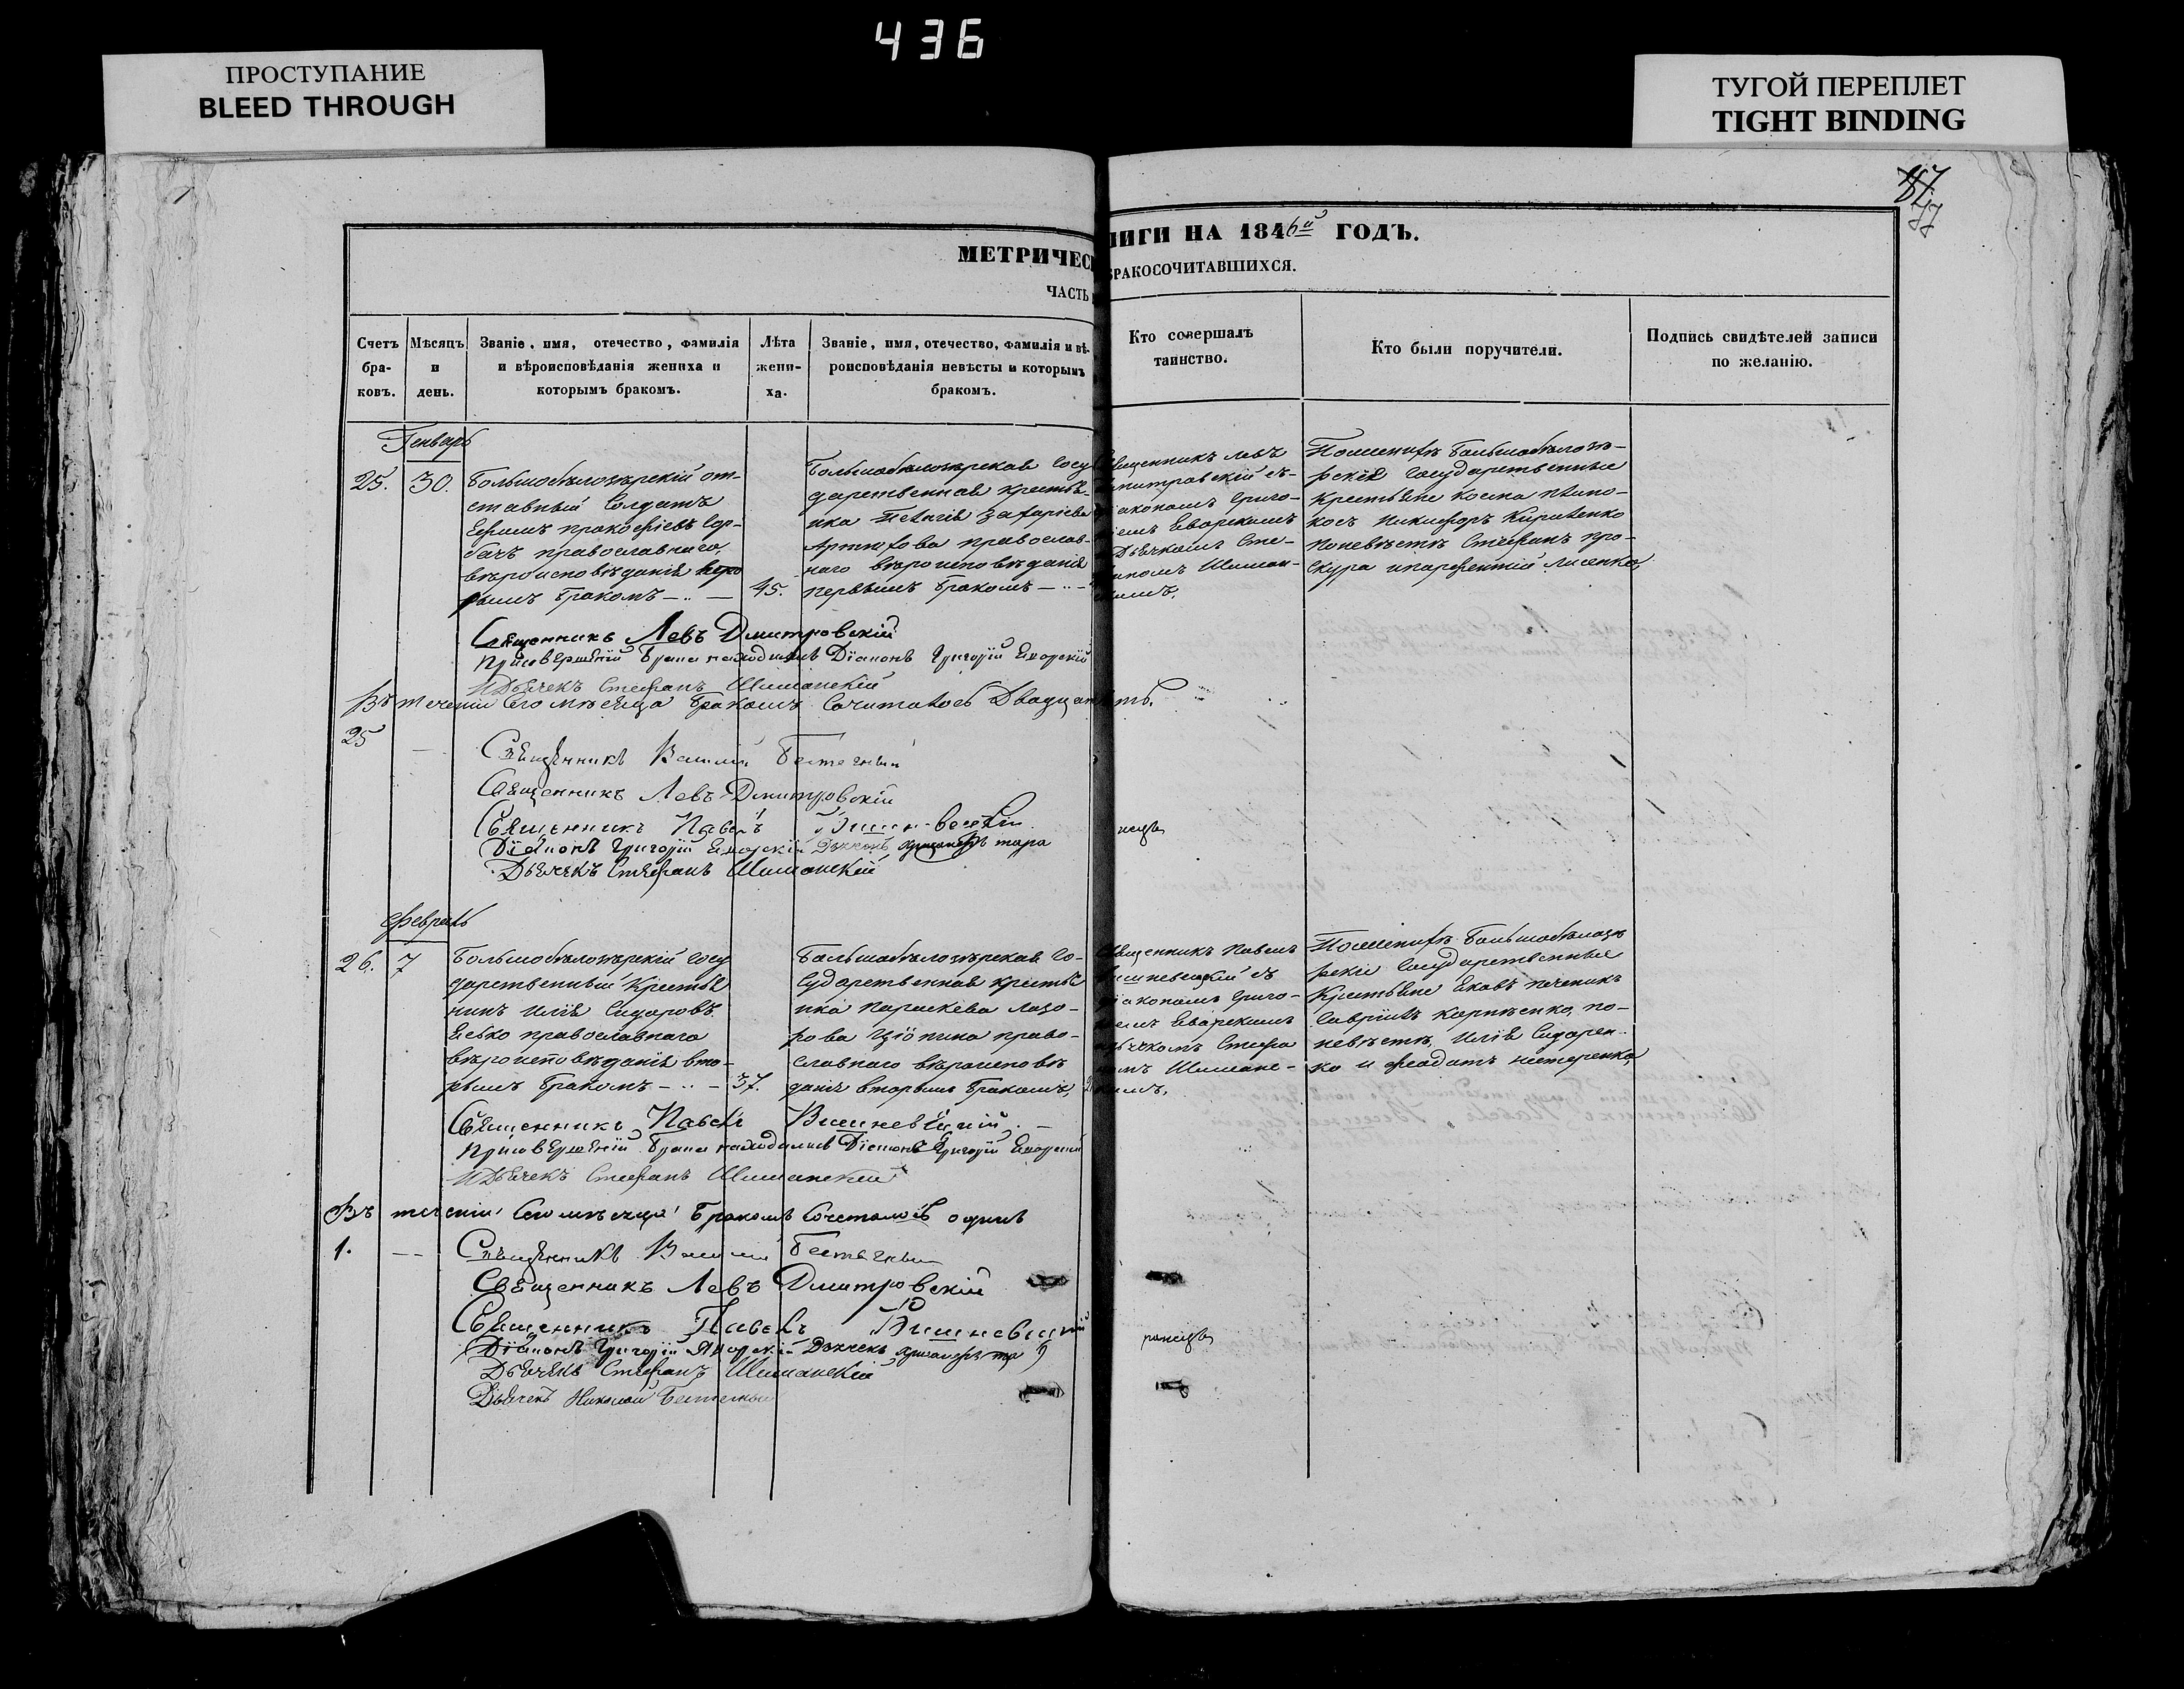 436
ПРОСТУПАНИЕ
BLEED THROUGH
ТУГОЙ ПЕРЕПЛЕТ
TIGHT BINDING
77
МЕТРИЧЕС
НИГИ НА 1846й ГОДЪ.
ЧАСТЬ
БРАКОСОЧИТАВШИХСЯ.
Счетъ бра-ковъ.
Мѣсяцъ и день.
Званіе, имя, отечество, фамилія и вѣроисповѣданія жениха и которымъ бракомъ.
Лѣта жени-ха.
Званіе, имя, отечество, фамилія и вѣ-роисповѣданія невѣсты и которымъ бракомъ.
Кто совершалъ таинство.
Кто были поручители.
Подпись свидѣтелей записи по желанію.
Генварь
25.
30.
Большобѣлозѣрскій от-
ставный Солдатъ
Ефимъ Прокофіевъ Гор-
бачъ православнаго
вѣроисповѣданія
бракомъ
45.
Большобѣлозѣрская Госу
дарственная крестья-
нка Пелагія Захаріева
православ-
наго вѣроисповѣданія
первымъ бракомъ
священникъ Левъ
митровскій съ
іакономъ Григо-
ріемъ Яворскимъ
Дьячкомъ Сте-
фаномъ Шиман-
скимъ.
Поженихѣ Большобѣлозѣ-
рскія Государственные
Крестьяне Косма
Никифоръ Кириленко
Поневѣстѣ Стефанъ Про-
скура Лисенко
Священникъ Левъ Дмитровскій
При совершеніи брака находились Діаконъ Григорій Яворскій
И Дьячекъ Стефанъ Шиманскій
Въ теченіи Сего мѣсяца бракомъ Сочиталось Двадцать пять.
25
Священникъ Василій
Священникъ Левъ Дмитровскій
Священникъ Павелъ Вишневецкій
Діаконъ Григорій Яворскій Дьячекъ
Дьячекъ Стефанъ Шиманскій
Февраль
26.
7
Большобѣлозѣрскій Госу
дарственный Крестья
нинъ Илія Сидоровъ
православнаго
вѣроисповѣданія вто-
рымъ бракомъ
37.
Большобѣлозѣрская Го-
сударственная крестья
нка Параскева Лазо-
рова право-
славнаго вѣроисповѣ
данія вторымъ бракомъ,
священникъ Павелъ
Вишневецкій съ
діакономъ Григо-
ріемъ Яворскимъ
дьячкомъ Стефа
номъ Шиманс-
кимъ.
Поженихѣ Большобѣлозѣ
рскіе Государственные
Крестьяне Яковъ
Гавріилъ Корнѣенко, по-
невѣстѣ, Илія Сидорен-
ко и Феодотъ Нестеренко
Священникъ Павелъ Вишневецкій
При совершеніи брака находились Діаконъ Григорій Яворскій
И Дьячекъ Стефанъ Шиманскій
Въ теченіи Сего мѣсяца бракомъ Сочеталось одинъ
1.
Священникъ Василій
Священникъ Левъ Дмитровскій
Священникъ Павелъ Вишневецкій
Діаконъ Григорій Яворскій Дьячекъ
Дьячекъ Стефанъ Шиманскій
Дьячекъ Николай